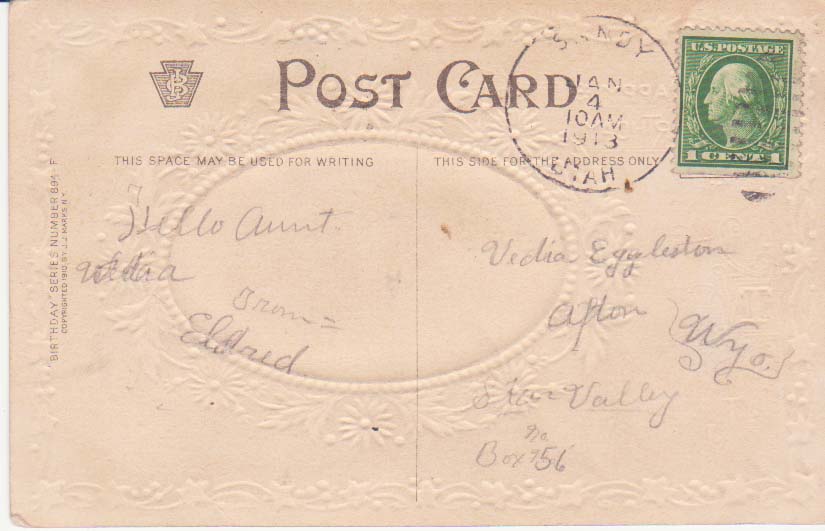 POST CARD
SANDY
JAN
4
10 AM
1913
UTAH
U.S. POSTAGE
1 CENT 1
THIS SPACE MAY BE USED FOR WRITING
THIS SIDE FOR THE ADDRESS ONLY
"BIRTHDAY" SERIES NUMBER 894 F
COPYRIGHTED 1910, BY J.J. MARKS N.Y.
Hello Aunt
Vedia
From =
Eldred
Vedia Eggleston
Afton
Wyo.
Star Valley
no.
Box 56